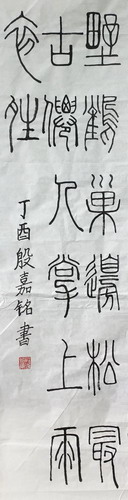 野鶴巢邊松最
古僊人掌上雨
初晴
丁酉殷嘉铭書